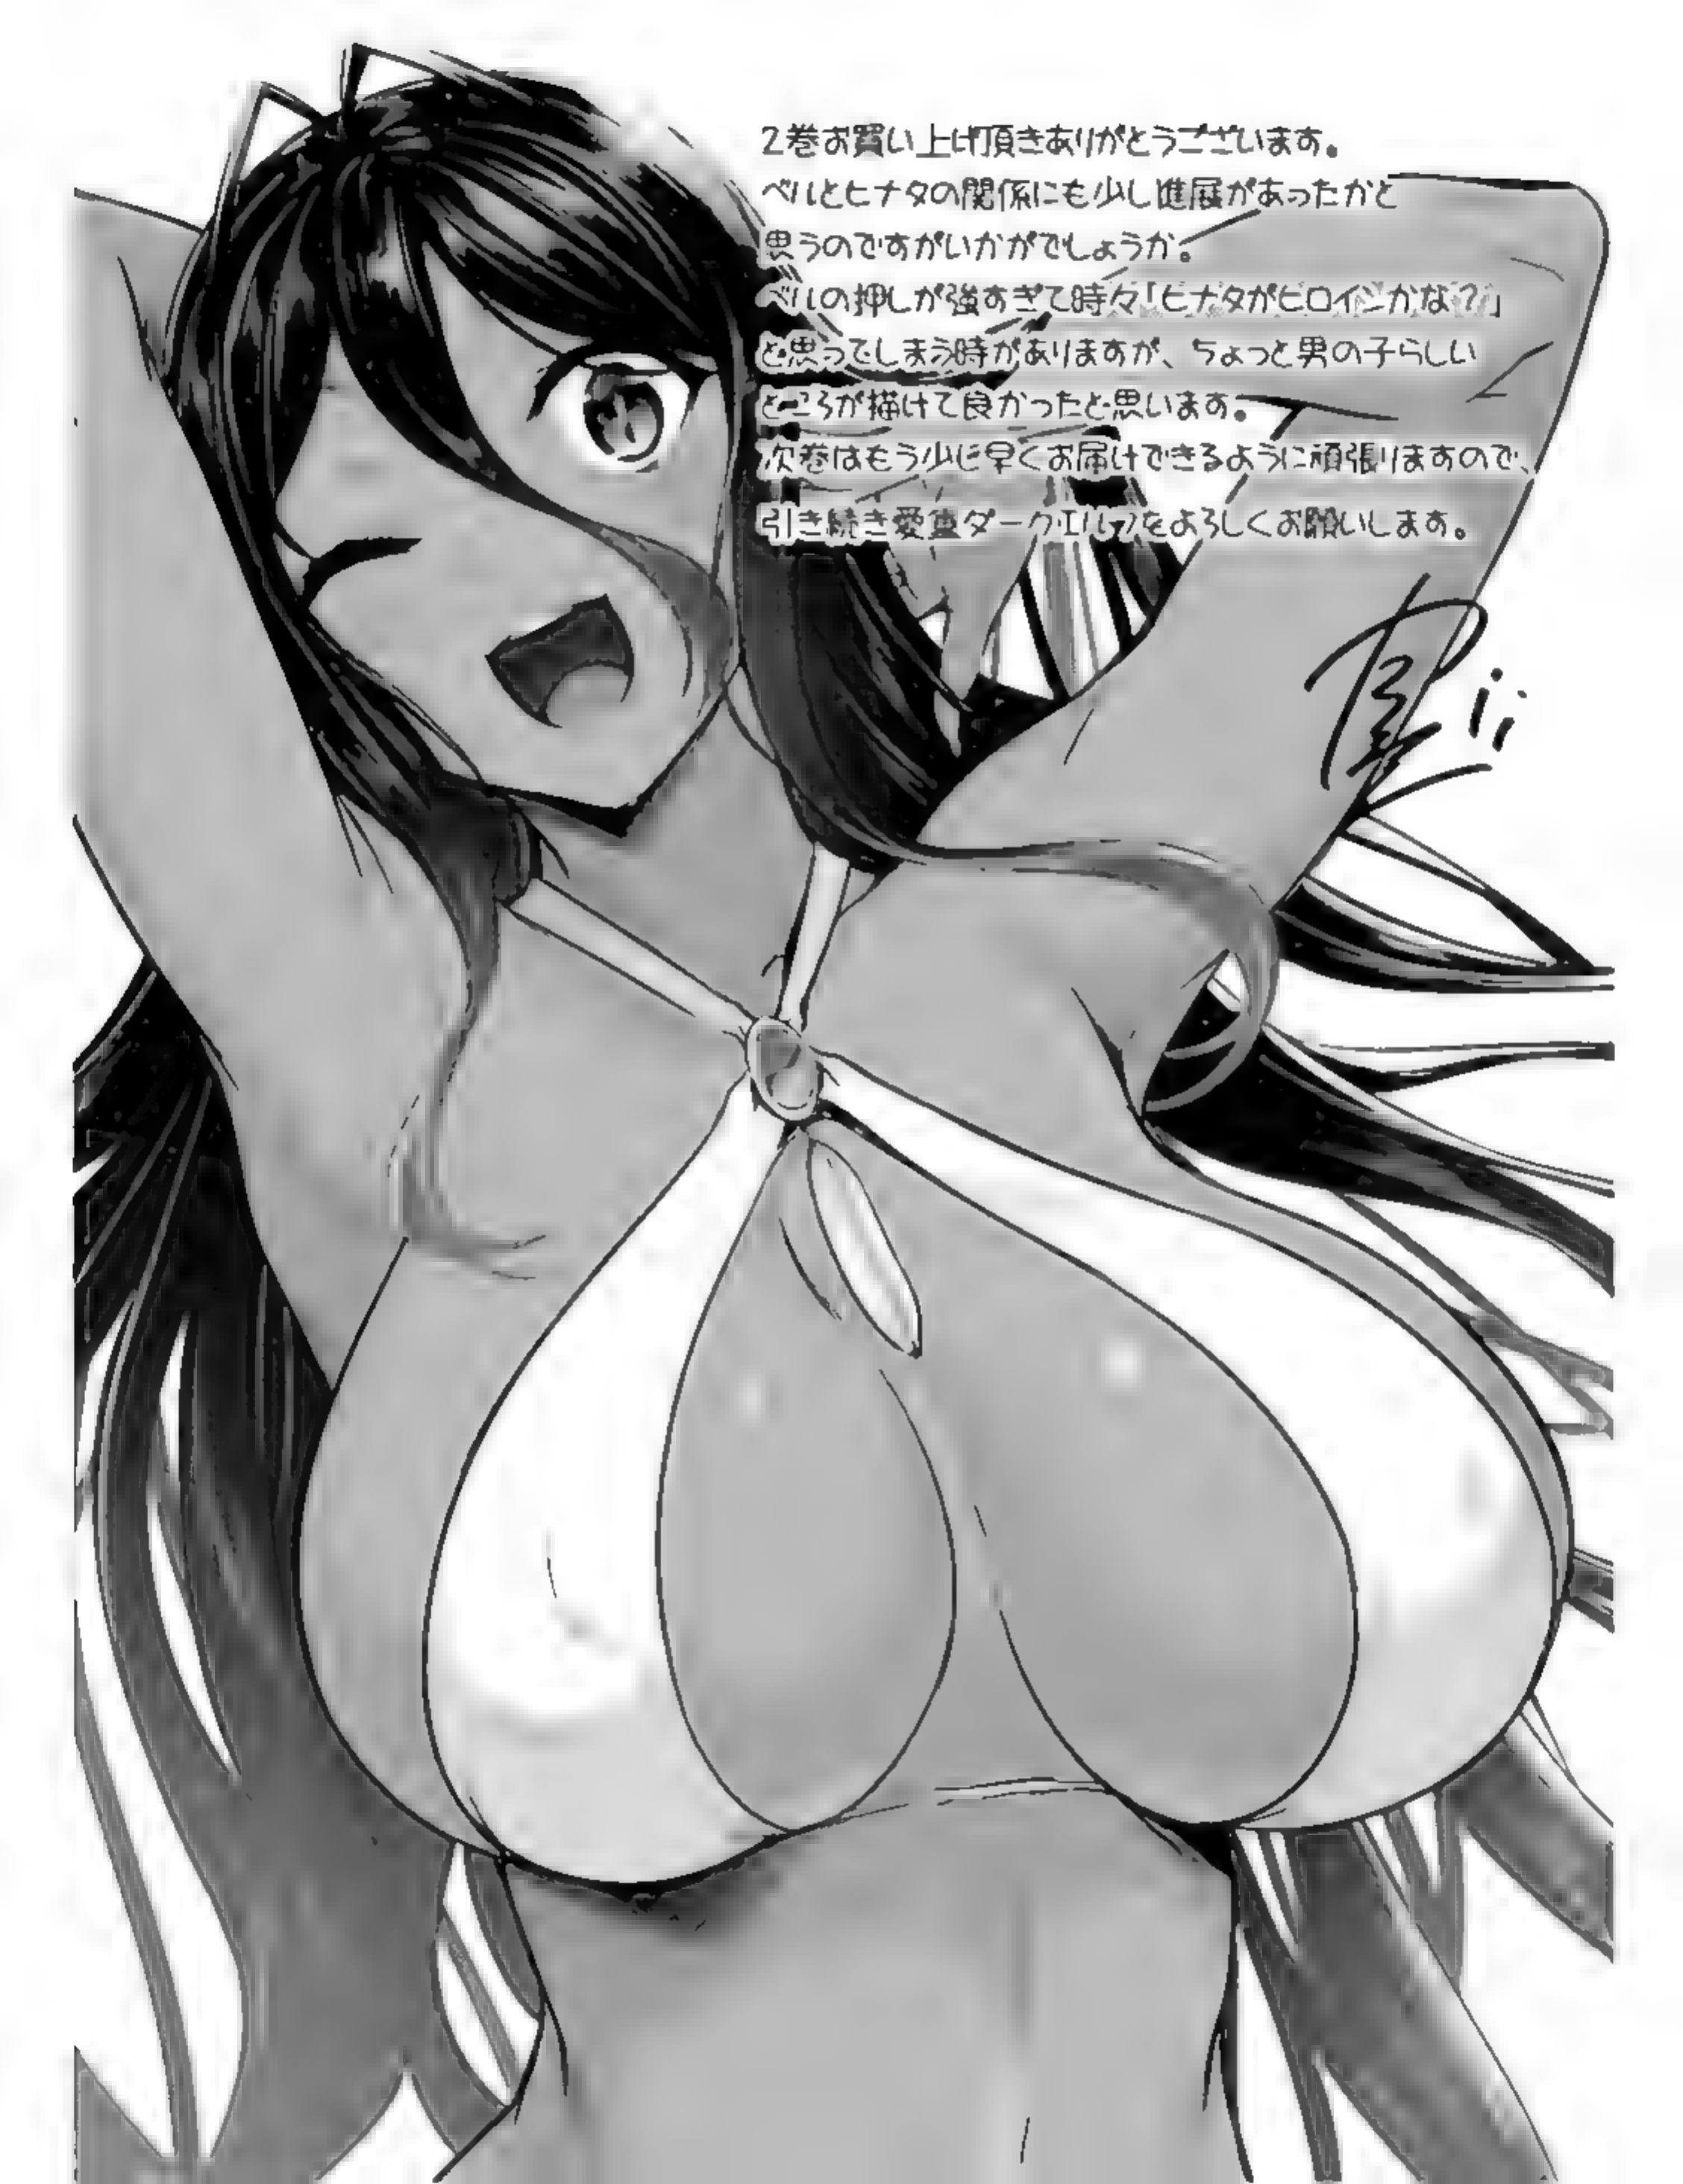 2巻お買い上げ頂きありがとうございます。
ベルとヒナタの関係にも少し進展があったかと
思うのですがいかがでしょうか。
ベルの押しが強すぎて時々「ヒナタがヒロインかな?」
と思ってしまう時がありますが、ちょっと男の子らしい
ところが描けて良かったと思います。
次巻はもう少し早くお届けできるように頑張りますので、
引き続き愛重ダークエルフをよろしくお願いします。